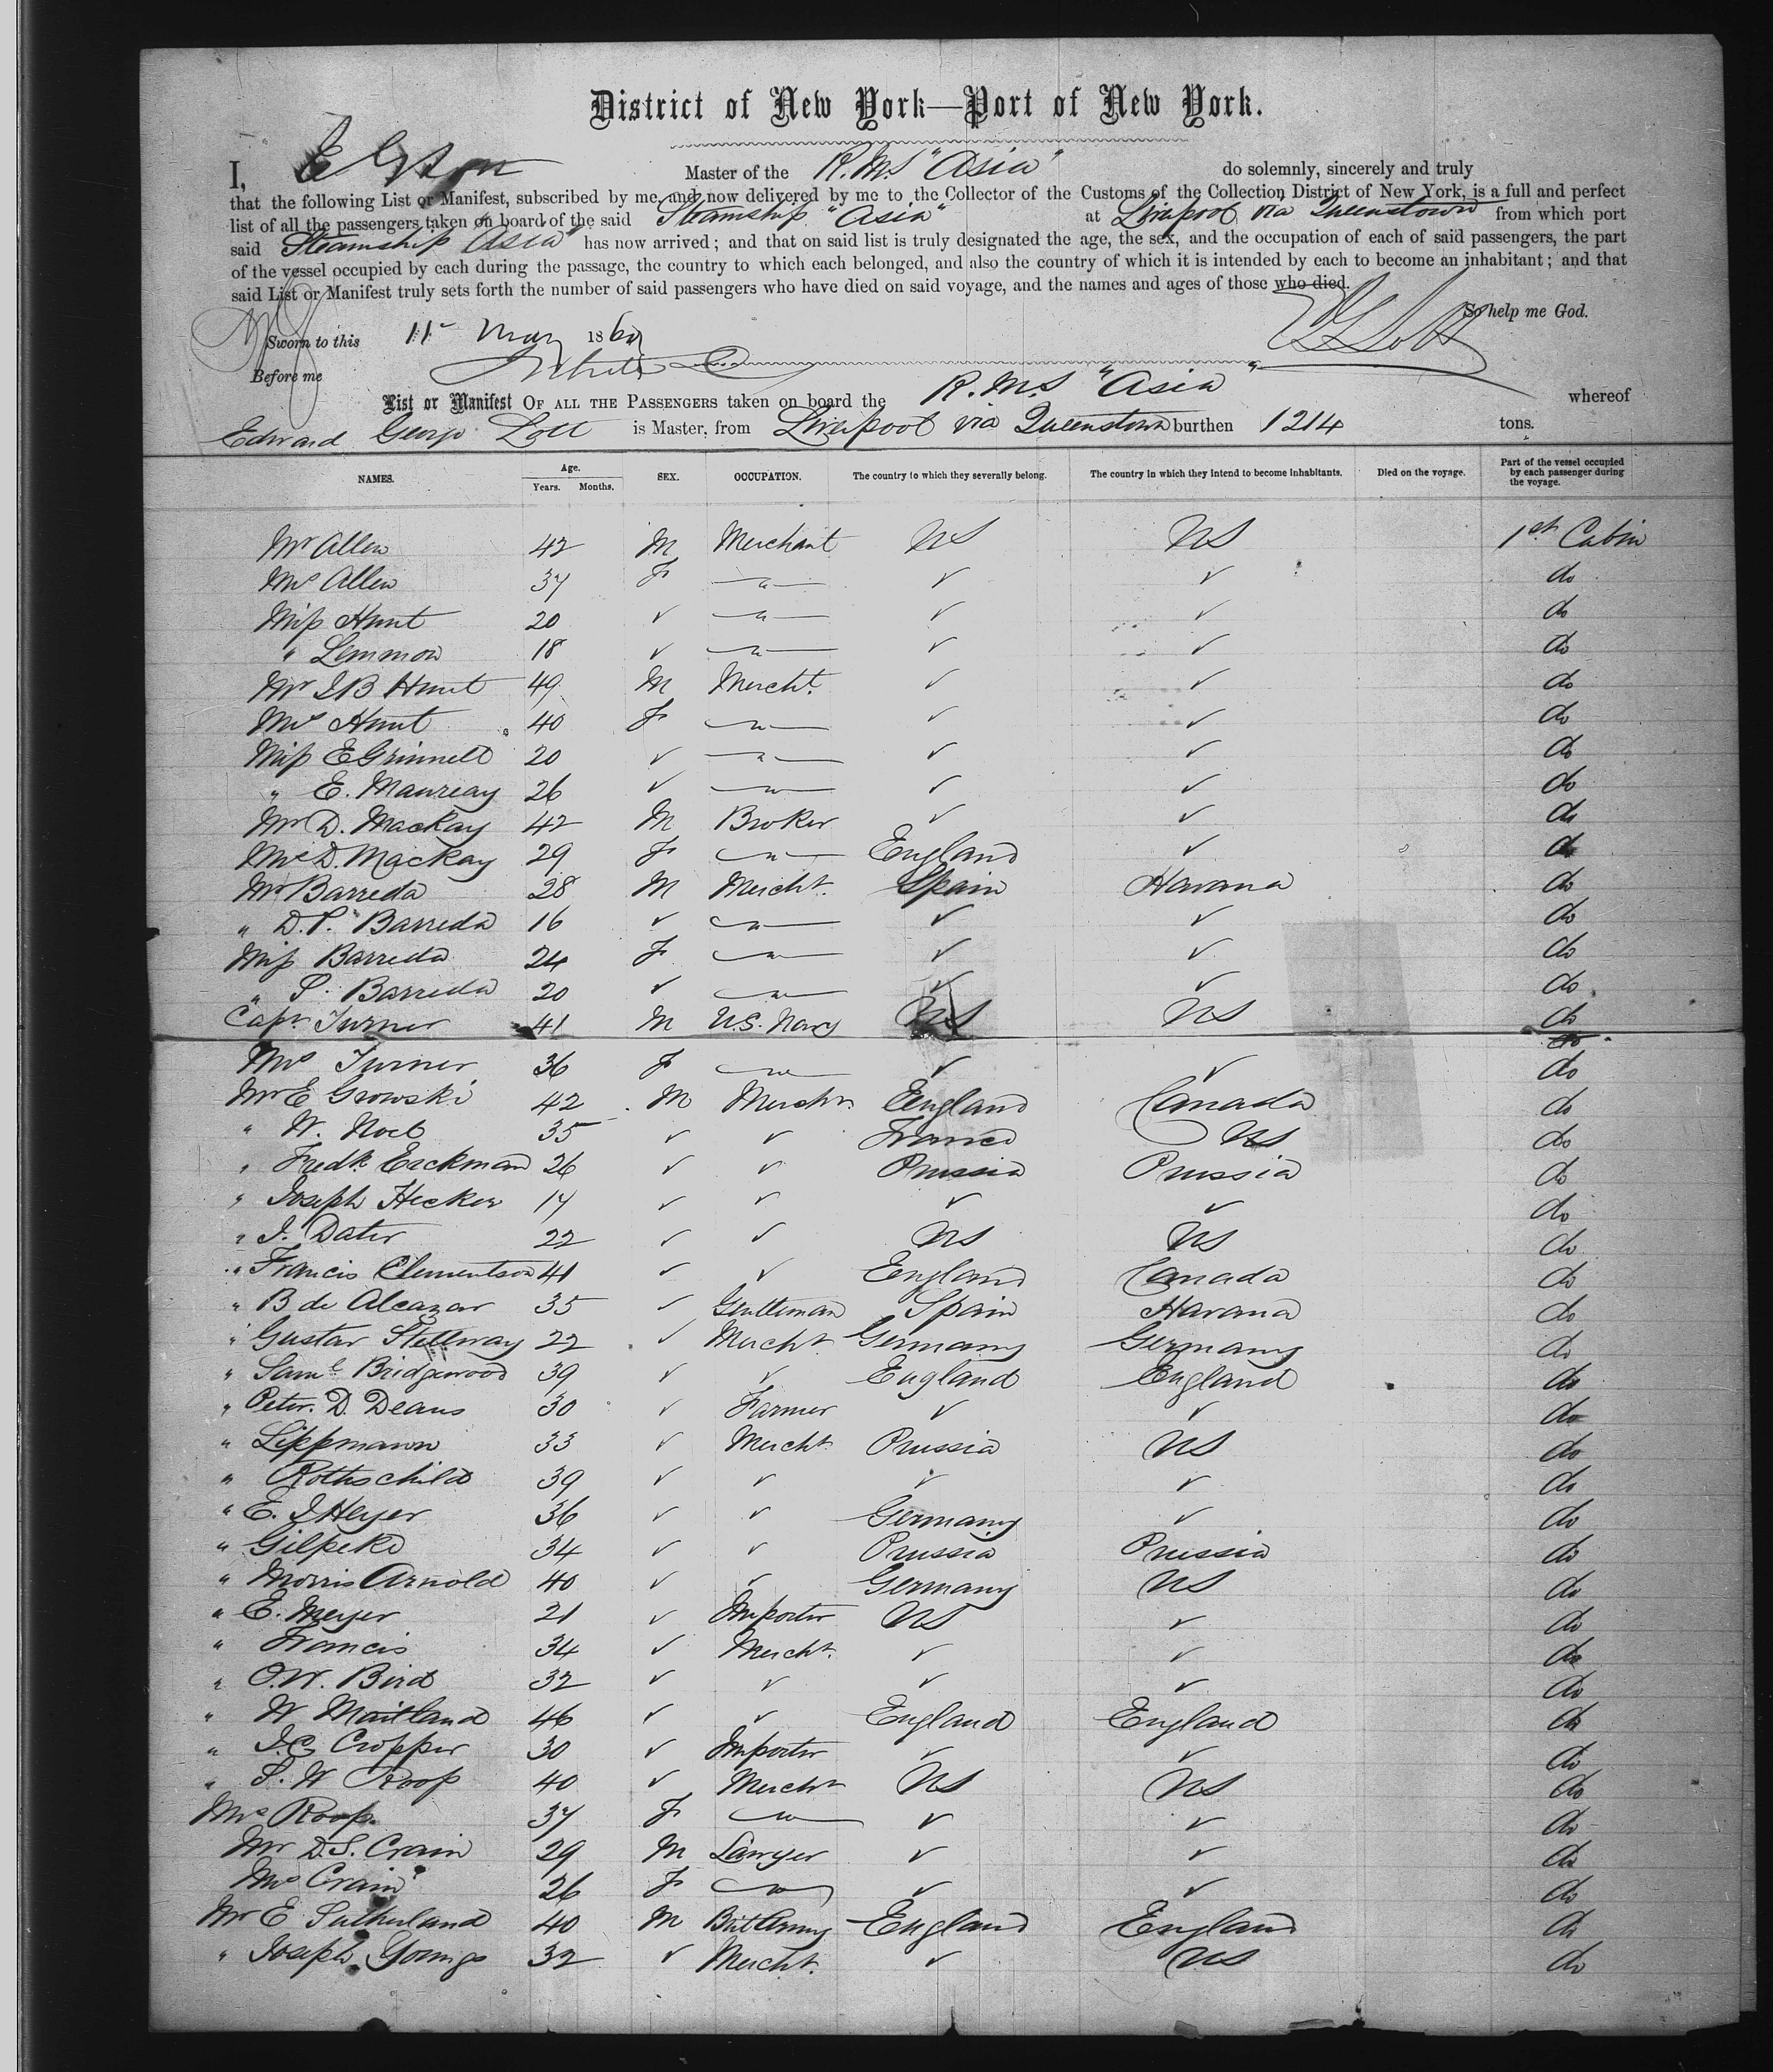 District of New York—Port of New York.
I, E G Lott Master of the R.M.S "Asia" do solemnly, sincerely and truly
that the following List or Manifest, subscribed by me, and now delivered by me to the Collector of the Customs of the Collection District of New York, is a full and perfect
list of all the passengers taken on board of the said Steamship "Asia" at Liverpool via Queenstown from which port
said Steamship Asia" has now arrived; and that on said list is truly designated the age, the sex, and the occupation of each of said passengers, the part
of the vessel occupied by each during the passage, the country to which each belonged, and also the country of which it is intended by each to become an inhabitant; and that
said List or Manifest truly sets forth the number of said passengers who have died on said voyage, and the names and ages of those who died.
So help me God.
Sworn to this 11 186 E G Lott
Before me
List or Manifest OF ALL THE PASSENGERS taken on board the R.M.S. "Asia" whereof
Edward George Lott is Master, from Liverpool via Queenstown burthen 1214 tons.
NAMES. Age. Years. Months. SEX. OCCUPATION. The country to which they severally belong. The country in which they intend to become inhabitants. Died on the voyage. Part of the vessel occupied by each passenger during the voyage.
Mr Allen 42 M Merchant US US 1st Cabin
Mrs Allen 37 F " ✓ ✓ do
Miss Hunt 20 ✓ " ✓ ✓ do
" Lemmon 18 ✓ " ✓ ✓ do
Mr I B Hunt 49 M Mercht. ✓ ✓ do
Mrs Hunt 40 F " ✓ ✓ do
Miss E Grinnell 20 ✓ " ✓ ✓ do
" E. 26 ✓ " ✓ ✓ do
Mr D. Mackay 42 M Broker ✓ ✓ do
Mrs D. Mackay 29 F " England ✓ do
Mr Barreda 28 M Mercht. Spain Havana do
" D.P. Barreda 16 ✓ " ✓ ✓ do
Miss Barreda 24 F " ✓ ✓ do
" P. Barreda 20 ✓ " ✓ ✓ do
Capn Turner 41 M U.S. Navy US US do
do
Mrs Turner 36 F " ✓ ✓ do
Mr E Growski 42 M Mercht. England Canada do
" W. Noel 35 ✓ ✓ France US do
" Fredk Eeckman 26 ✓ ✓ Prussia Prussia do
" Joseph Hecker 17 ✓ ✓ ✓ ✓ do
" I. Dater 22 ✓ ✓ US US do
" Francis Clementson 41 ✓ ✓ England Canada do
" B de Alcazar 35 ✓ Gentleman Spain Havana do
" Gustav Stellway 22 ✓ Mercht Germany Germany do
" Saml Bridgewood 39 ✓ ✓ England England do
" Peter. D. Deans 30 ✓ Farmer ✓ ✓ do
" Lippmann 33 ✓ Mercht Prussia US do
" Rothschild 39 ✓ ✓ ✓ ✓ do
" E. I Heyer 36 ✓ ✓ Germany ✓ do
" Gilpeke 34 ✓ ✓ Prussia Prussia do
" Morris Arnold 40 ✓ ✓ Germany US do
" E. Meyer 21 ✓ Importer US ✓ do
" Francis 34 ✓ Mercht. ✓ ✓ do
" O.W. Bird 32 ✓ ✓ ✓ ✓ do
" W Maitland 46 ✓ ✓ England England do
" I.C. Cropper 30 ✓ Importer ✓ ✓ do
" S. W Roop 40 ✓ Mercht US US do
Mrs Roop. 37 F " ✓ ✓ do
Mr D.S. Crain 29 M Lawyer ✓ ✓ do
Mrs Crain 26 F " ✓ ✓ do
Mr E Sutherland 40 M Brit Army England England do
" Joseph Youngs 32 ✓ Mercht. ✓ US do